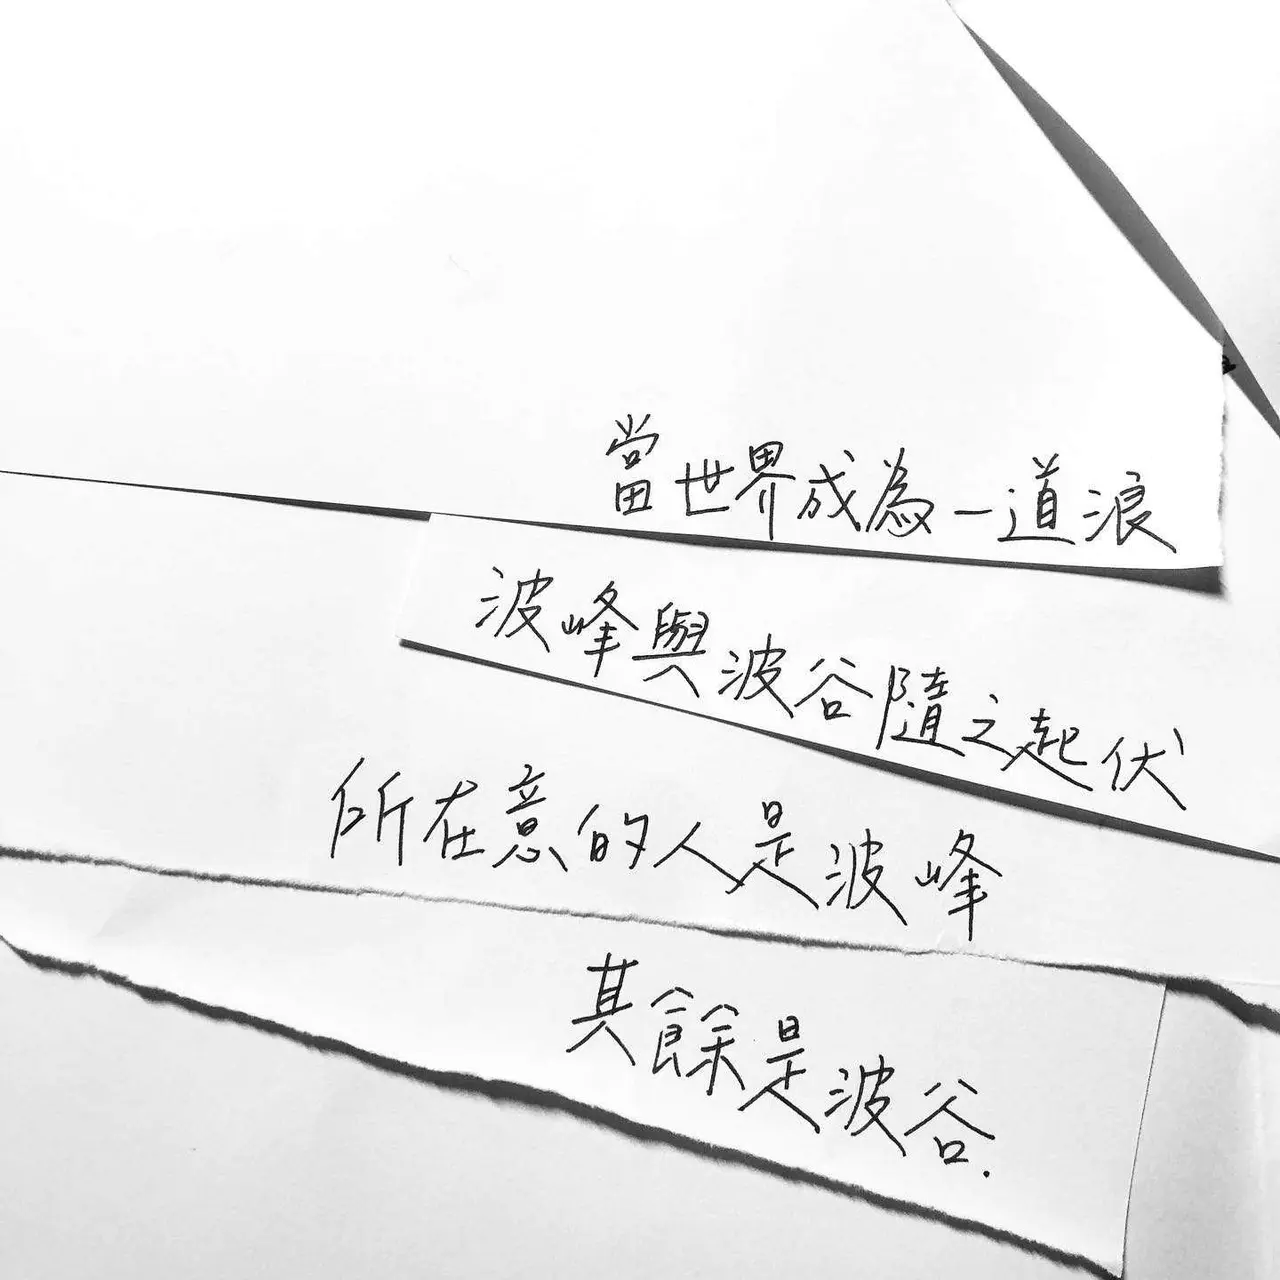 當世界成為一道浪
波峰與波谷隨之起伏
所在意的人是波峰
其餘是波谷.